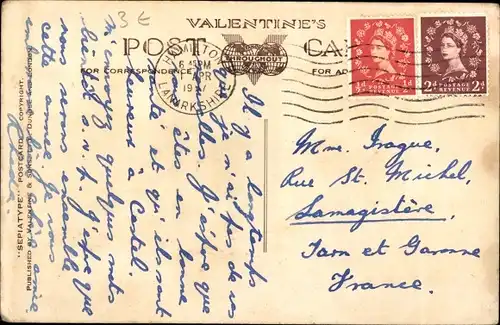 3 €
VALENTINE'S
POST CARD
FOR CORRESPONDENCE
FOR AD
THROUGHOUT
WORLD
HAMILTON
6 45 PM
APR
1957
LANARKSHIRE
½d
POSTAGE
REVENUE
2d 2d
POSTAGE
REVENUE
"SEPIATYPE" POSTCARD. COPYRIGHT.
PUBLISHED BY VALENTINE & SONS LTD. DUNDEE AND LONDON
Il y a longtemps
que j'n'ai pas de vos
nouvelles. J'espère que
vous êtes en bonne
santé et qu'il sont
heureux à Castel.
m'envoyez quelques mots
bientôt s.v.p. J'espère que
nous serons ensemble
cette année. Je vous
Mme. Fraque,
Rue St. Michel,
Lamagistère,
Tarn et Garonne
France.